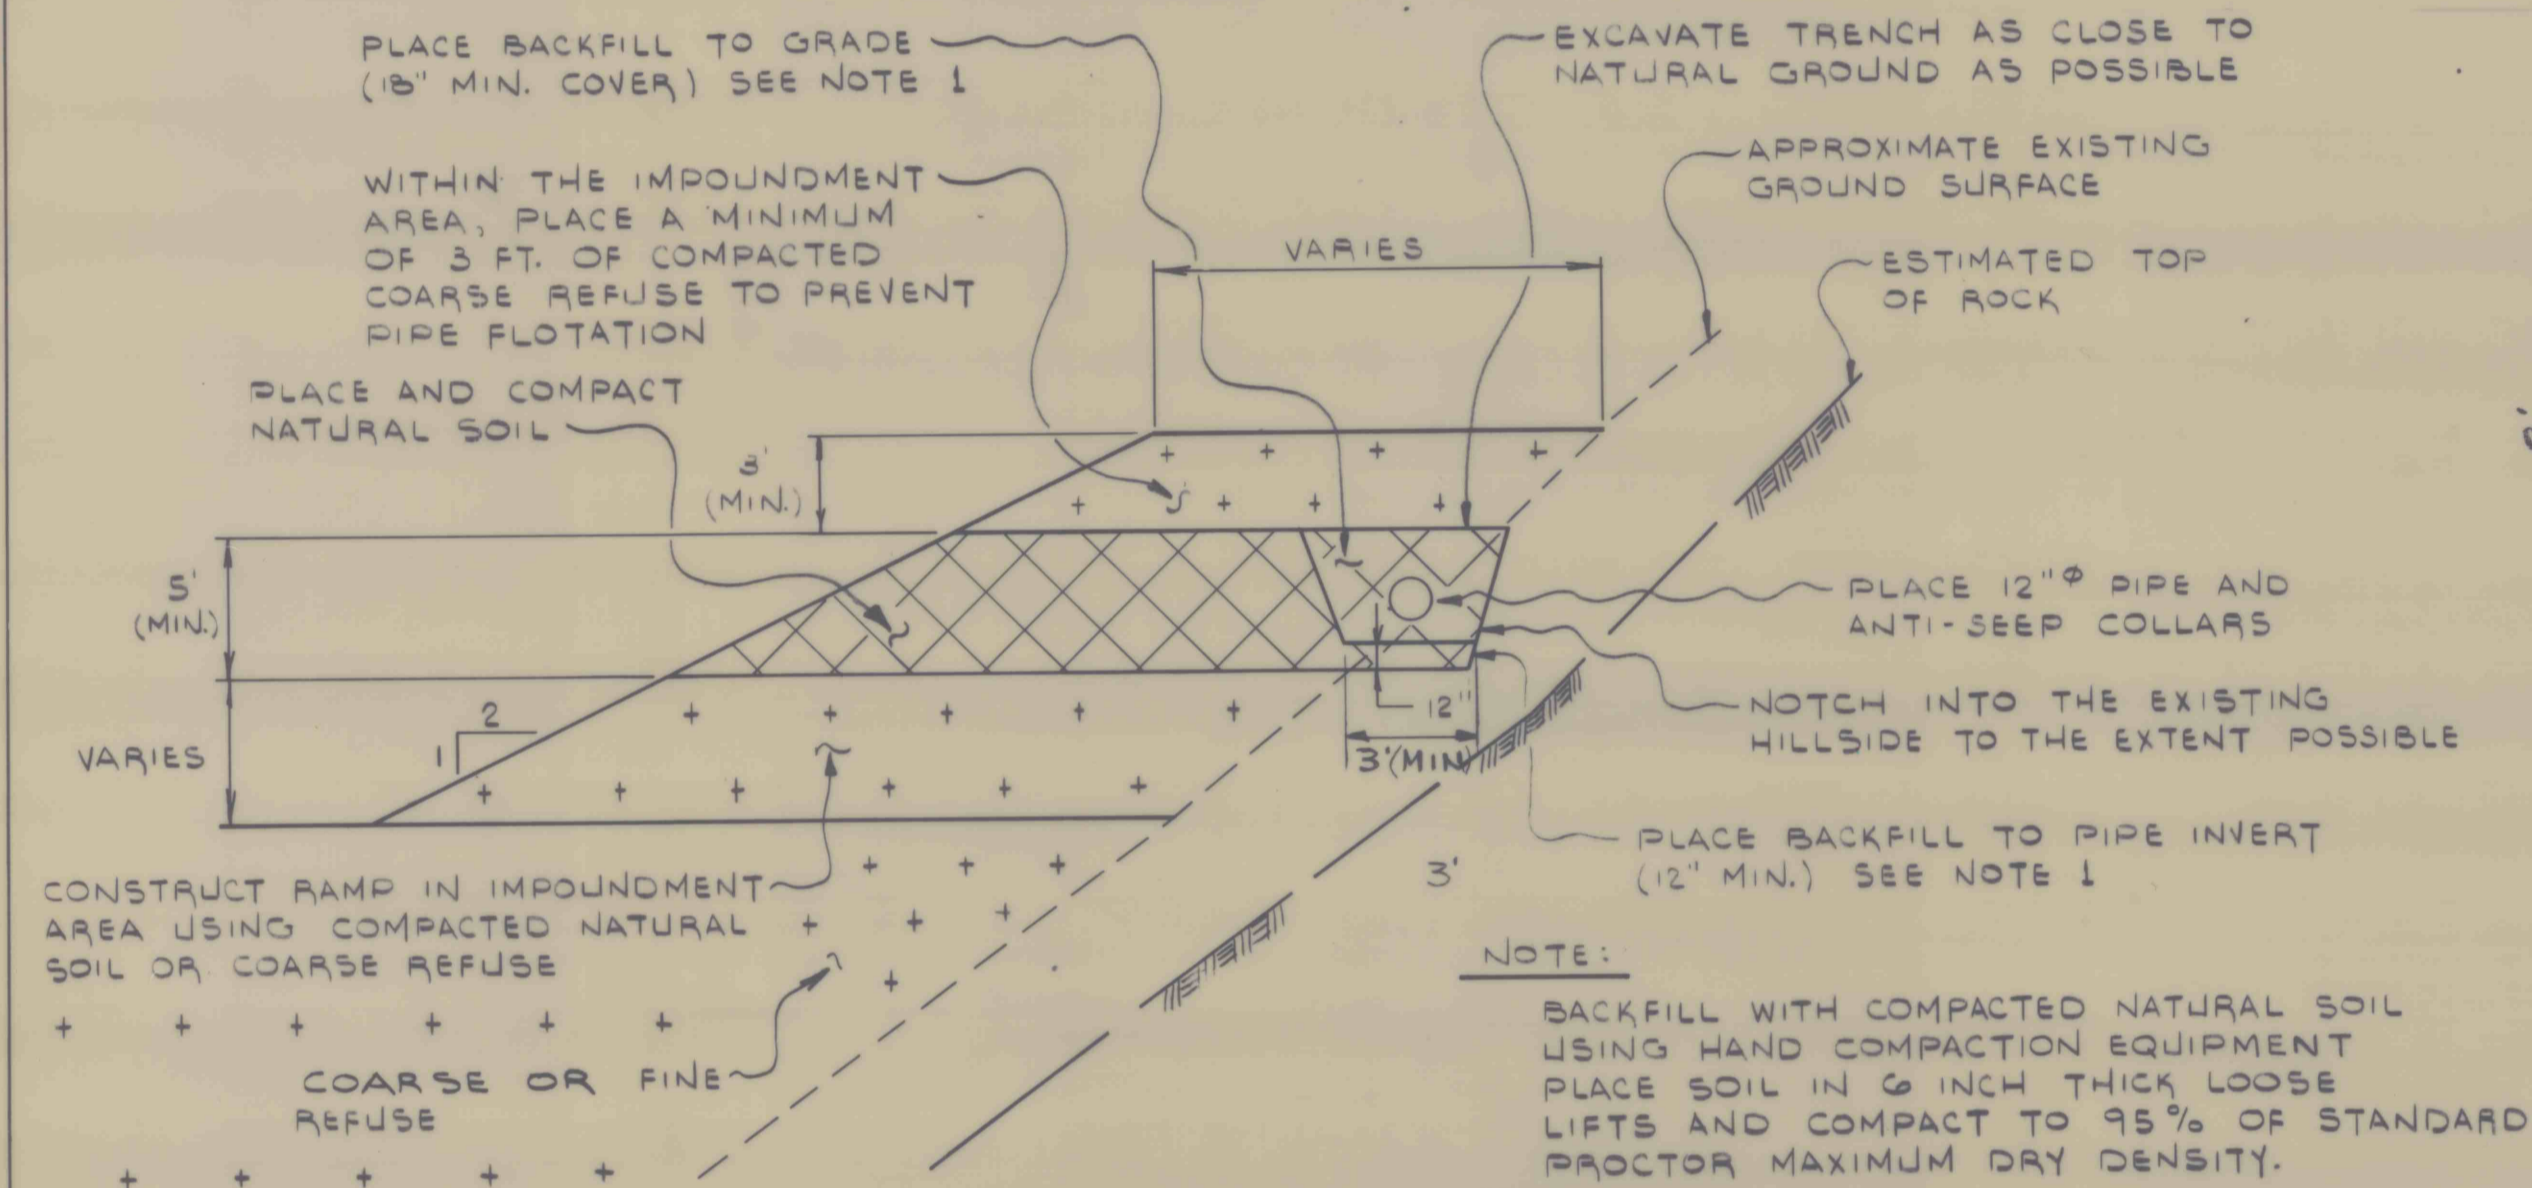 PLACE BACKFILL TO GRADE
(18" MIN. COVER) SEE NOTE 1
EXCAVATE TRENCH AS CLOSE TO
NATURAL GROUND AS POSSIBLE
APPROXIMATE EXISTING
GROUND SURFACE
WITHIN THE IMPOUNDMENT
AREA, PLACE A MINIMUM
OF 3 FT. OF COMPACTED
COARSE REFUSE TO PREVENT
PIPE FLOTATION
VARIES
ESTIMATED TOP
OF ROCK
PLACE AND COMPACT
NATURAL SOIL
3'
(MIN.)
5'
(MIN.)
PLACE 12"Φ PIPE AND
ANTI-SEEP COLLARS
NOTCH INTO THE EXISTING
HILLSIDE TO THE EXTENT POSSIBLE
12"
3'(MIN)
2
1
VARIES
PLACE BACKFILL TO PIPE INVERT
(12" MIN.) SEE NOTE 1
3'
CONSTRUCT RAMP IN IMPOUNDMENT
AREA USING COMPACTED NATURAL
SOIL OR COARSE REFUSE
COARSE OR FINE
REFUSE
NOTE:
BACKFILL WITH COMPACTED NATURAL SOIL
USING HAND COMPACTION EQUIPMENT
PLACE SOIL IN 6 INCH THICK LOOSE
LIFTS AND COMPACT TO 95% OF STANDARD
PROCTOR MAXIMUM DRY DENSITY.